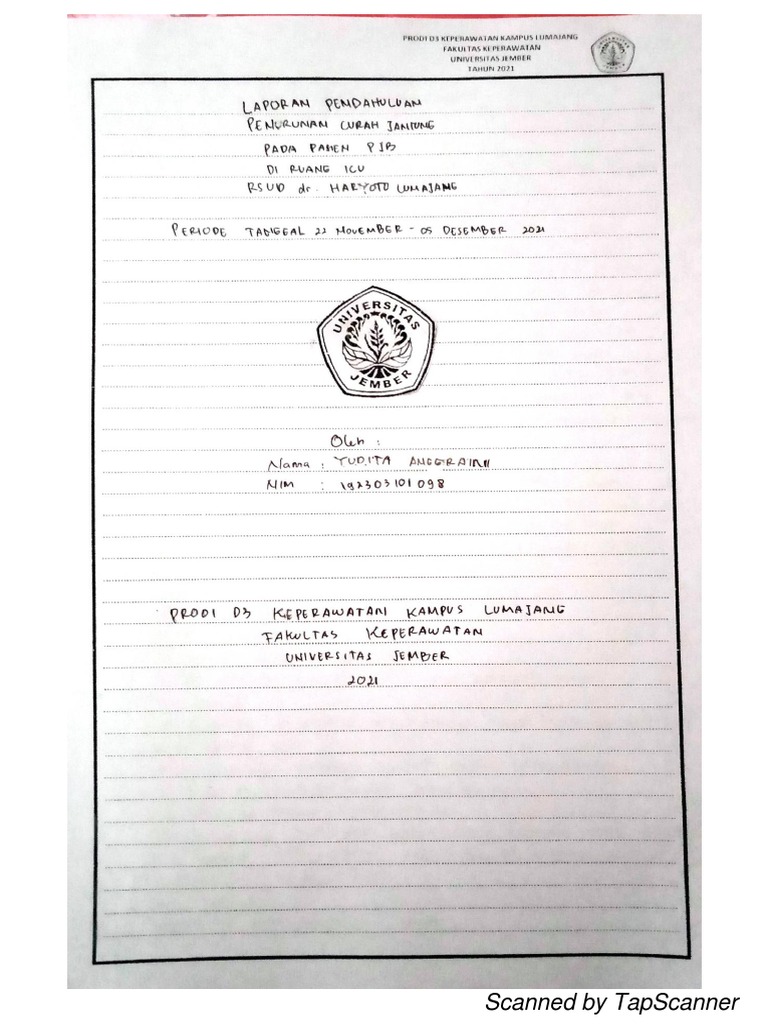 PRODI D3 KEPERAWATAN KAMPUS LUMAJANG
FAKULTAS KEPERAWATAN
UNIVERSITAS JEMBER
TAHUN 2021
LAPORAN PENDAHULUAN
PENURUNAN CURAH JANTUNG
PADA PASIEN PJB
DI RUANG ICU
RSUD dr. HARYOTO LUMAJANG
PERIODE TANGGAL 22 NOVEMBER - 05 DESEMBER 2021
UNIVERSITAS
JEMBER
Oleh :
Nama : YUDITA ANGGRAINI
NIM : 192303101098
PRODI D3 KEPERAWATAN KAMPUS LUMAJANG
FAKULTAS KEPERAWATAN
UNIVERSITAS JEMBER
2021
Scanned by TapScanner